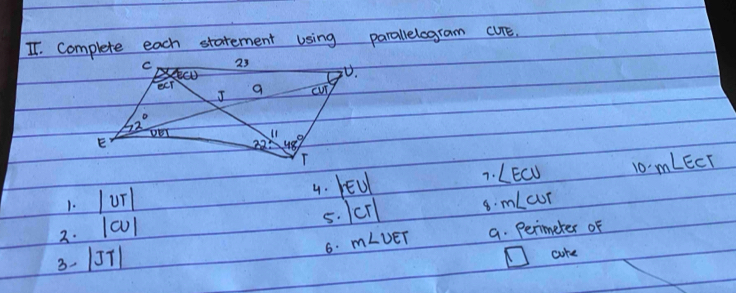 II. Complete each statement using parallelogram CUTE.
C 23 U.
ECU
ECT J 9 CUT
72° UET 11
E 22° 48°
T
1. |UT| 4. |EU| 7. ∠ECU 10. m∠ECT
2. |CU| 5. |CT| 8. m∠CUT
3. |JT| 6. m∠UET 9. Perimeter OF
▱ cute